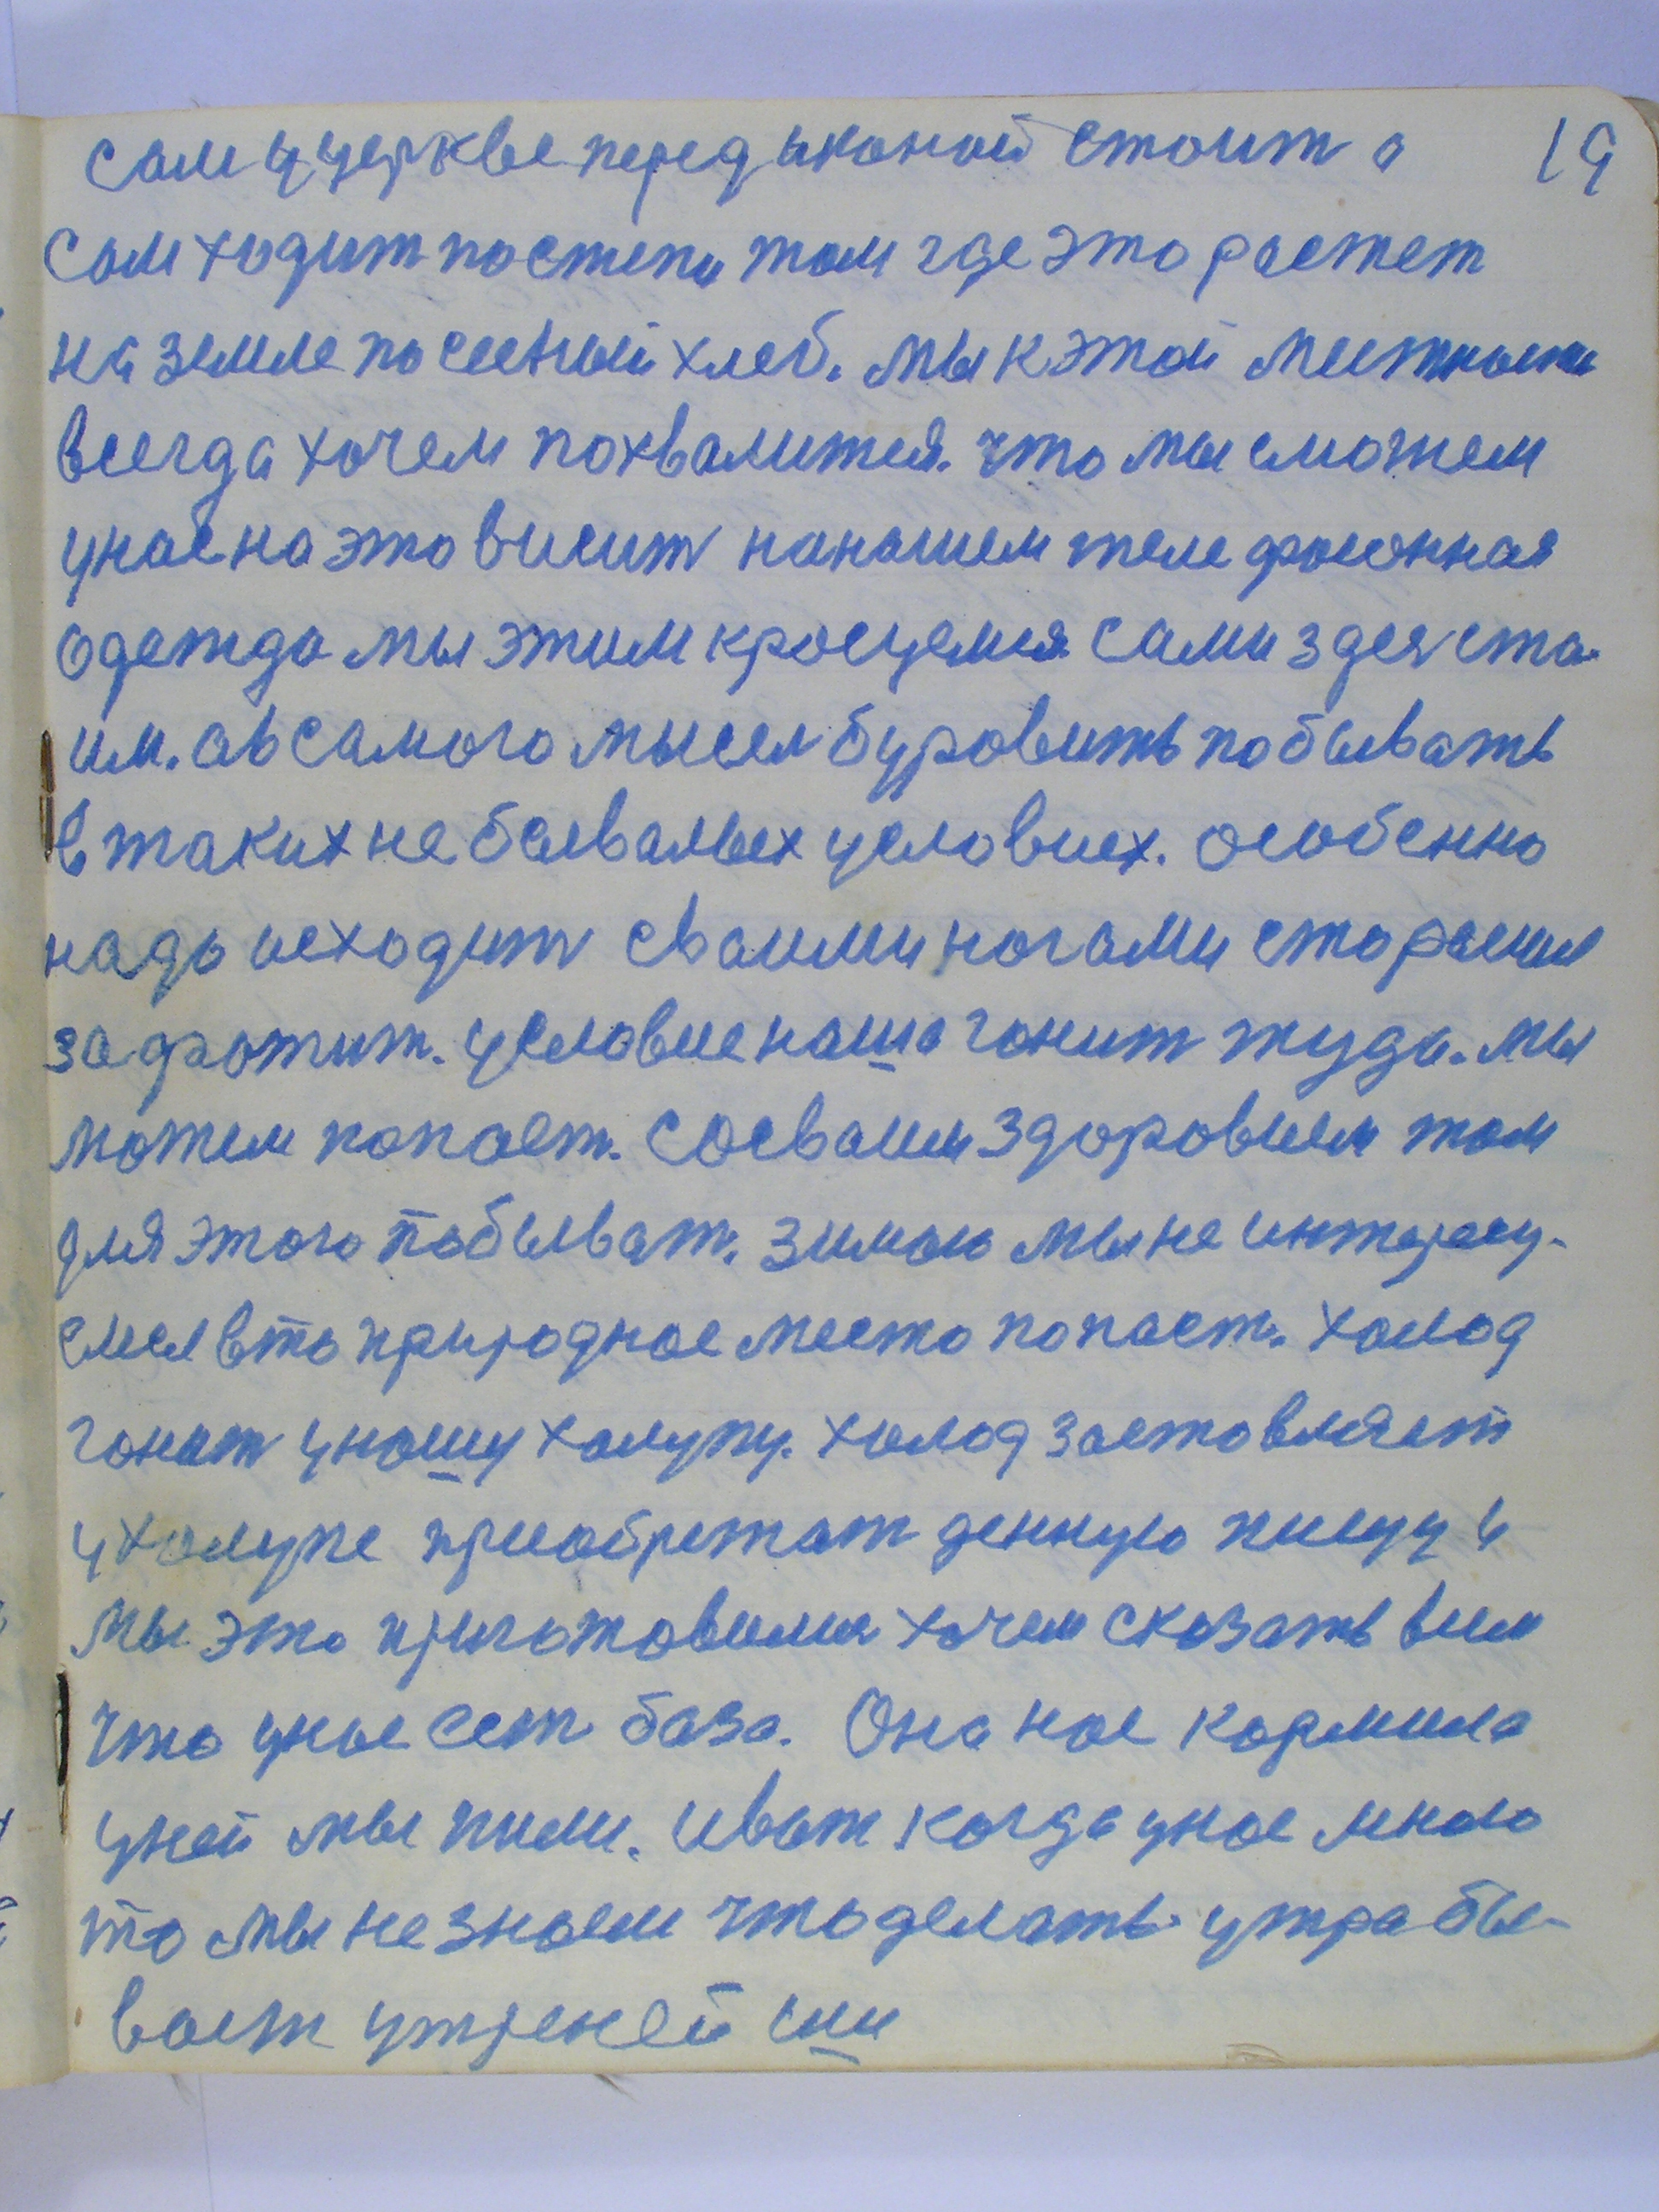 сам у церкве перед иконой стоит а 19
сам ходит по степи там где это растет
на земле посеений хлеб. мы к этой местности
всегда хочем похвалится. что мы сможем
у нас на это висит на нашем теле фасонная
одежда мы этим красуемся сами здесь ста-
им. а в самого мысел буровить побывать
в таких не бывалых условиех. особенно
надо исходит сваими ногами старания
за фотит. условие наша гонит туда. мы
можем попаст. со сваим здоровием там
для этого побыват. зимою мы не интересу-
емся в то природное место попаст. холод
гонит у нашу халупу. холод заставляет
у халупе приобретат денную пищу и
мы это приготовили хочем сказать всем
что у нас сет база. Она нас кормила
у ней мы пили. и ват когда у нас много
то мы не знаем что делать. утра бы-
вает утреней сни